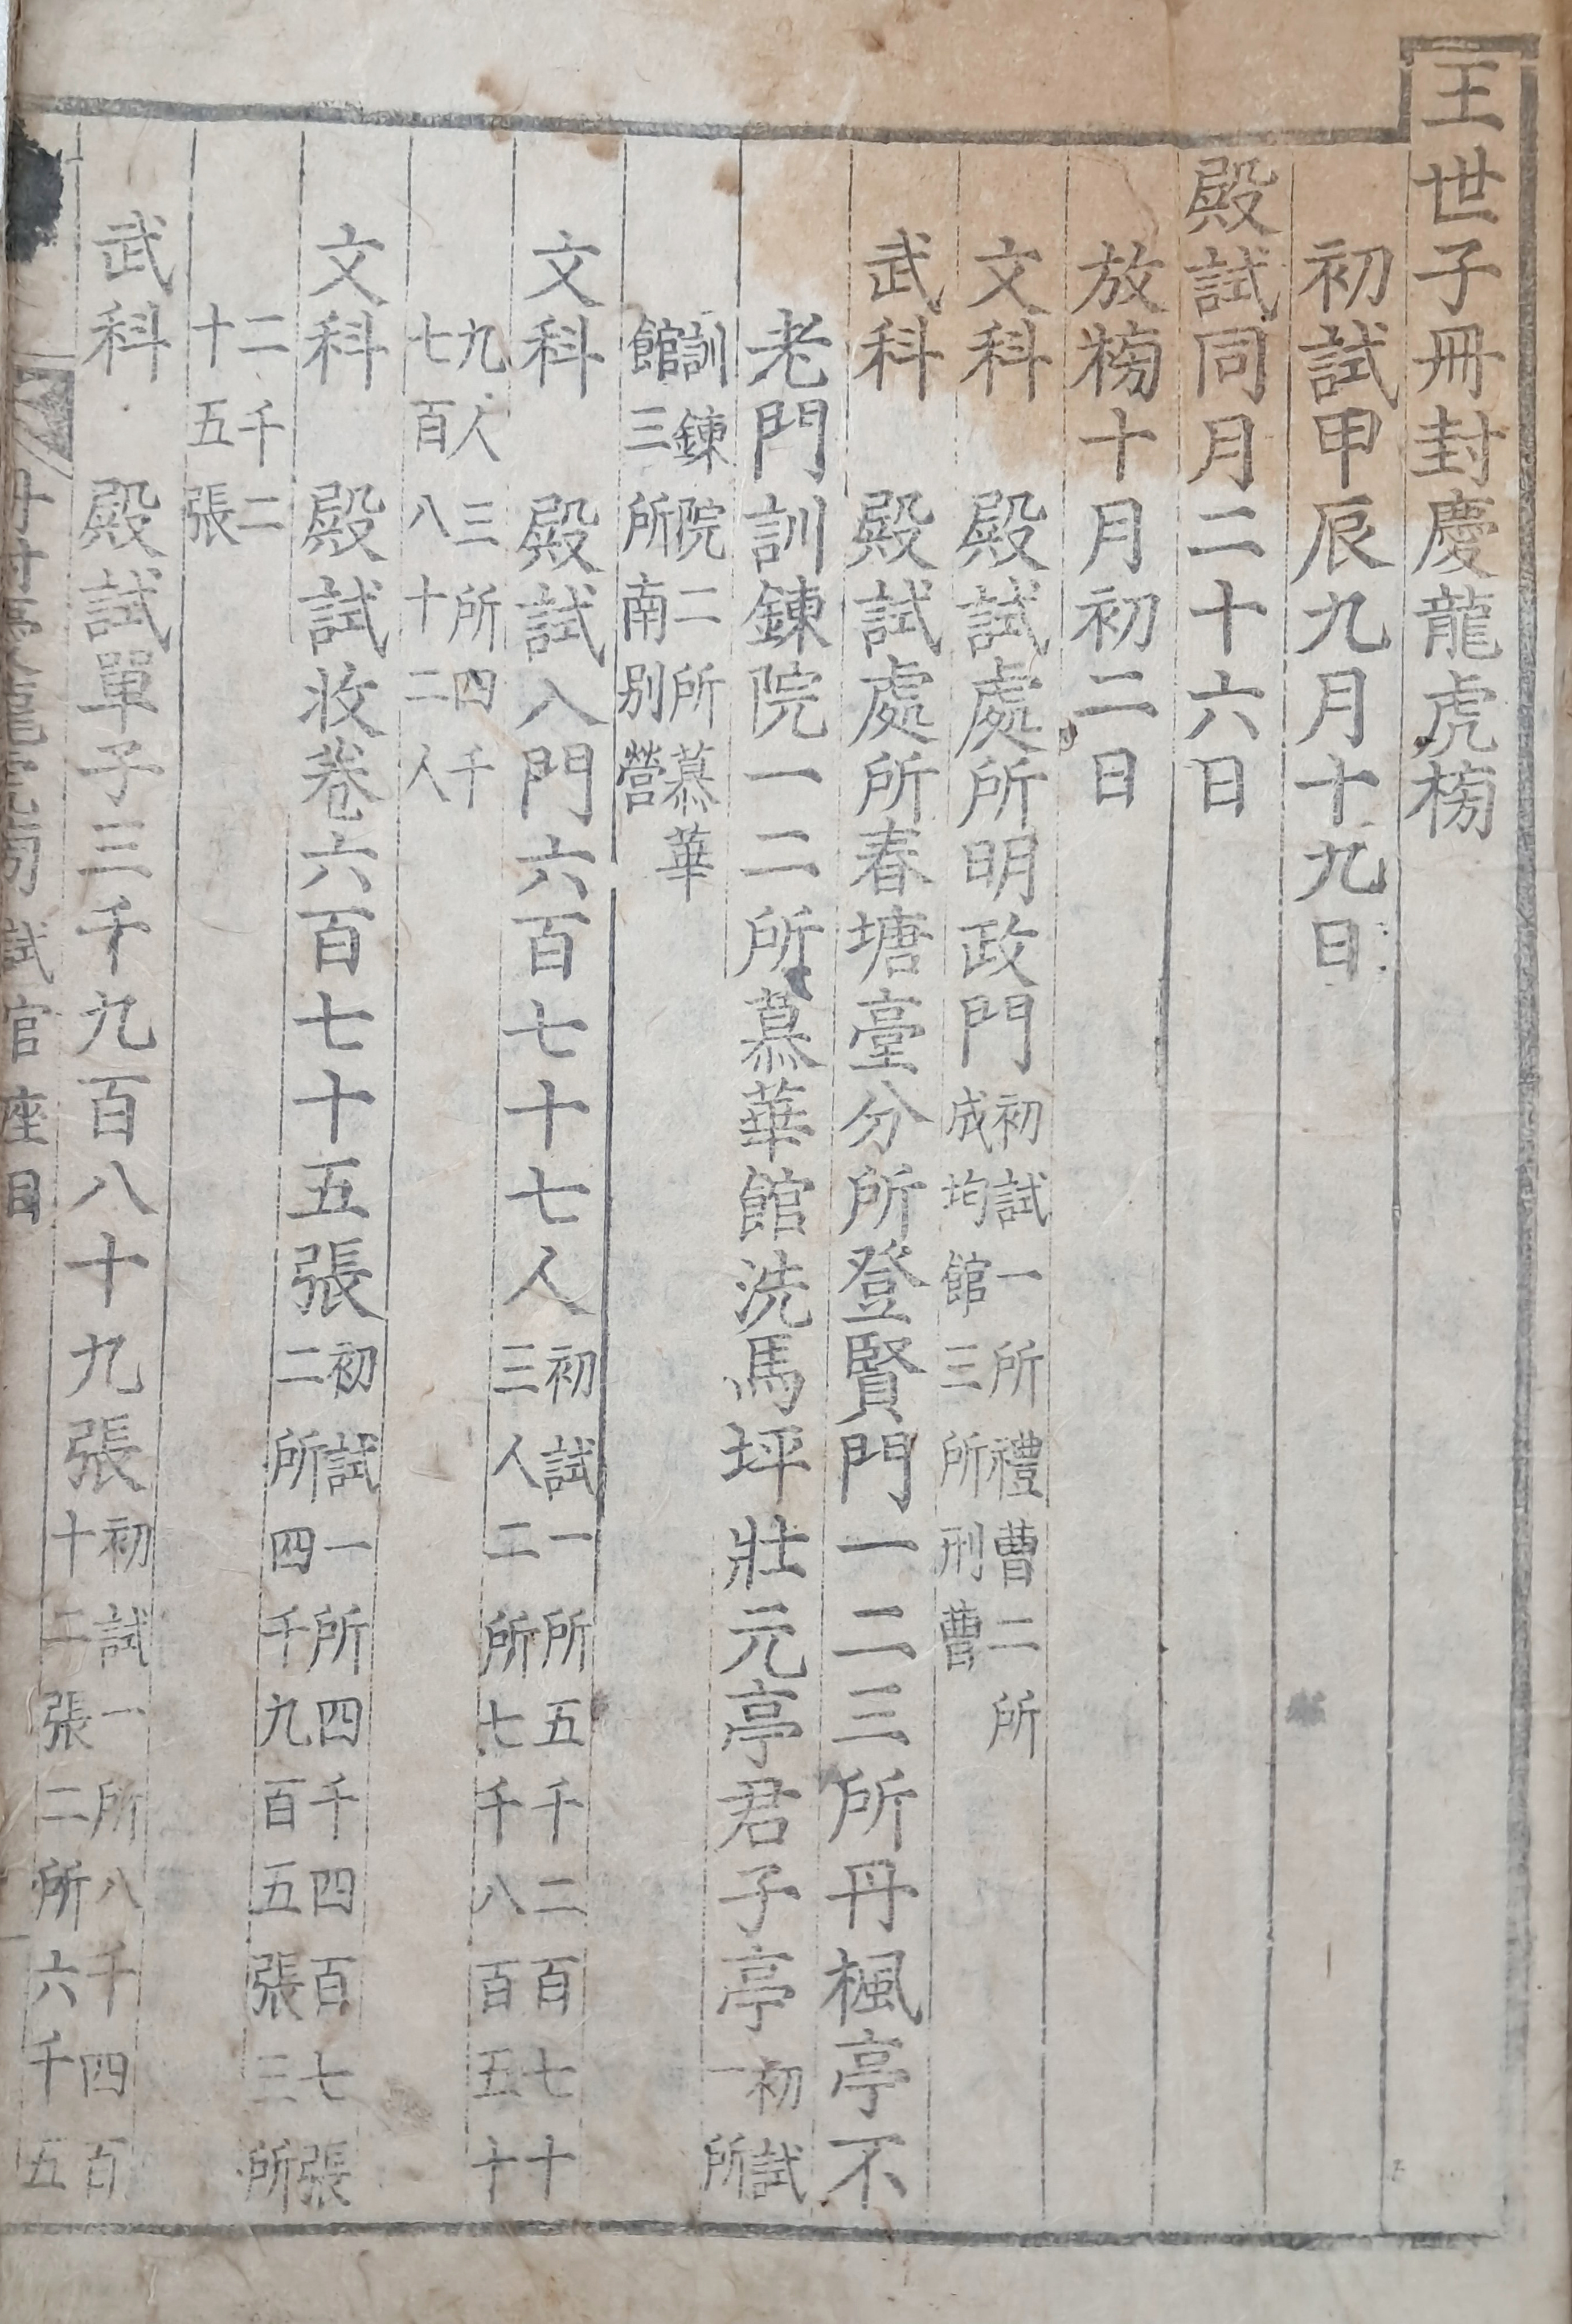 王世子冊封慶龍虎榜
初試甲辰九月十九日
殿試同月二十六日
放榜十月初二日
文科 殿試處所明政門初試一所禮曹二所
成均館三所刑曹
武科 殿試處所春塘臺分所登賢門一二三所丹楓亭不
老門訓鍊院一二所慕華館洗馬坪壯元亭君子亭初試
一所
訓鍊院二所慕華
館三所南別營
文科 殿試入門六百七十七人初試一所五千二百七十
三人二所七千八百五十
九人三所四千
七百八十二人
文科 殿試收卷六百七十五張初試一所四千四百七張
二所四千九百五張三所
二千二
十五張
武科 殿試單子三千九百八十九張初試一所八千四百
十二張二所六千五
試官座目